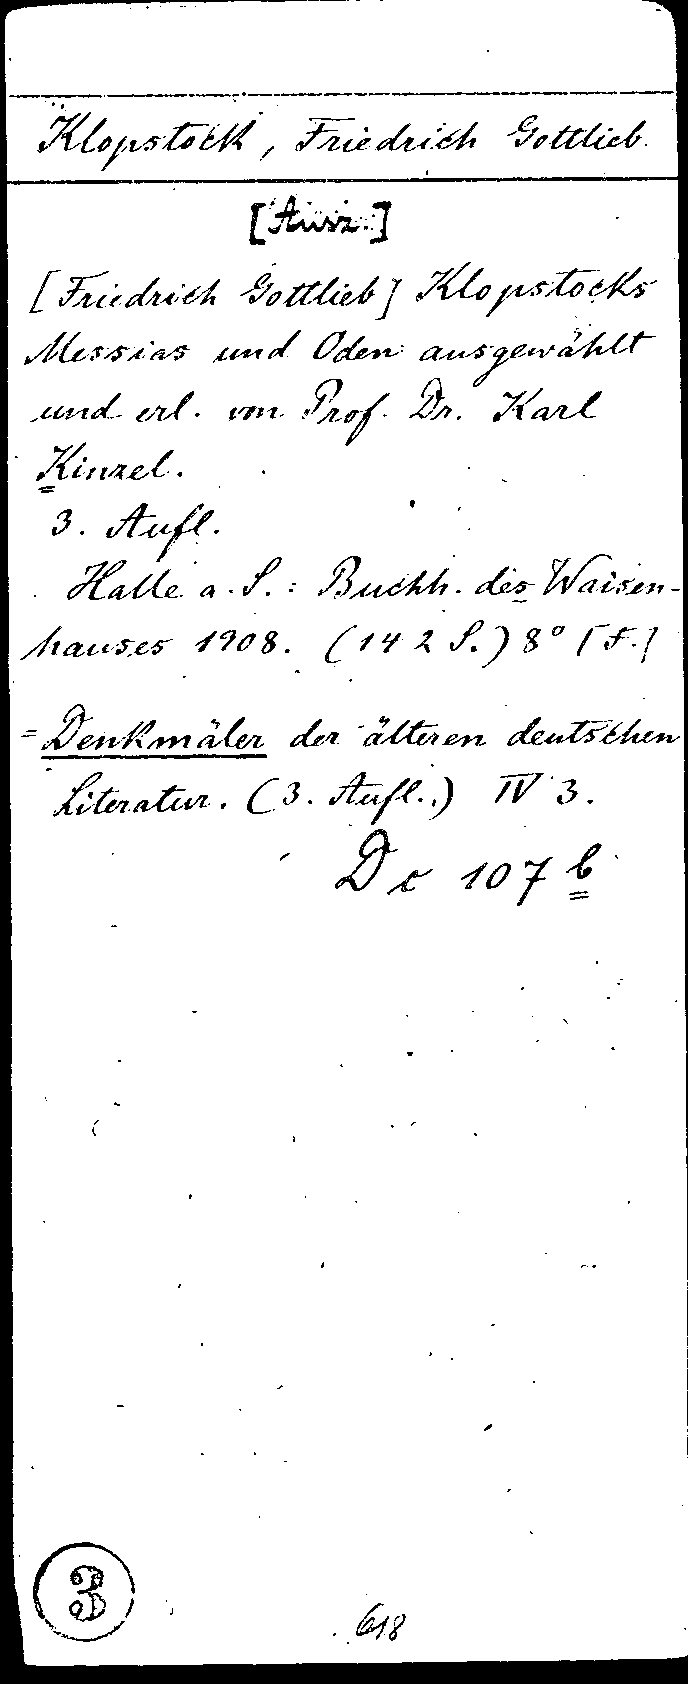 Klopstock, Friedrich Gottlieb.
[Ausz.]
[Friedrich Gottlieb] Klopstocks
Messias und Oden ausgewählt
und erl. von Prof. Dr. Karl
Kinzel.
3. Aufl.
Halle a. S.: Buchh. des Waisen-
hauses 1908. (142 S.) 8° [F.]
=Denkmäler der älteren deutschen
Literatur. (3. Aufl.) IV 3.
Dc 107 b
3
618